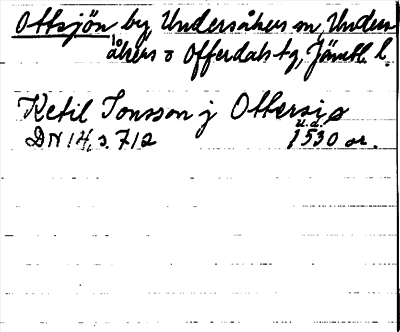 Ottsjön by, Undersåkers sn, Unders
åkers o Offerdals tg, Jämtl. l.
Ketil Jonsson j Ottersiø
u.d.
DN 14, s. 712 1530 or.